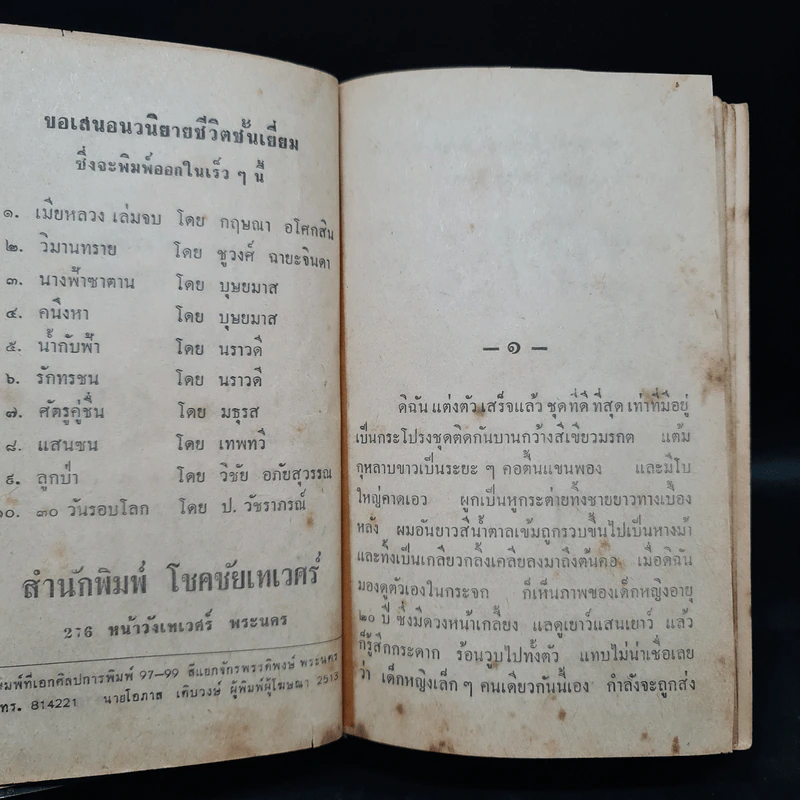 ขอเสนอนวนิยายชีวิตชั้นเยี่ยม
ซึ่งจะพิมพ์ออกในเร็ว ๆ นี้
๑. เมียหลวง เล่มจบ โดย กฤษณา อโศกสิน
๒. วิมานทราย โดย ชูวงศ์ ฉายะจินดา
๓. นางฟ้าซาตาน โดย บุษยมาส
๔. คนึงหา โดย บุษยมาส
๕. น้ำกับฟ้า โดย นราวดี
๖. รักทรชน โดย นราวดี
๗. ศัตรูคู่ชื่น โดย มธุรส
๘. แสนซน โดย เทพทวี
๙. ลูกป่า โดย วิชัย อภัยสุวรรณ
๑๐. ๓๐ วันรอบโลก โดย ป. วัชราภรณ์
สำนักพิมพ์ โชคชัยเทเวศร์
276 หน้าวังเทเวศร์ พระนคร
พิมพ์ที่เอกศิลปการพิมพ์ 97-99 สี่แยกจักรพรรดิพงษ์ พระนคร
โทร. 814221 นายโอภาส เติบวงษ์ ผู้พิมพ์ผู้โฆษณา 2513
— ๑ —
ดิฉัน แต่งตัว เสร็จแล้ว ชุด ที่ดี ที่สุด เท่าที่มีอยู่
เป็นกระโปรงชุดติดกันบานกว้างสีเขียวมรกต แต้ม
กุหลาบขาวเป็นระยะ ๆ คอตื้นแขนพอง และมีโบ
ใหญ่คาดเอว ผูกเป็นหูกระต่ายทิ้งชายยาวทางเบื้อง
หลัง ผมอันยาวสีน้ำตาลเข้มถูกรวบขึ้นไปเป็นหางม้า
และทิ้งเป็นเกลียวกลิ้งเคลียลงมาถึงต้นคอ เมื่อดิฉัน
มองดูตัวเองในกระจก ก็เห็นภาพของเด็กหญิงอายุ
๒๐ ปี ซึ่งมีดวงหน้าเกลี้ยง แลดูเยาว์แสนเยาว์ แล้ว
ก็รู้สึกกระดาก ร้อนวูบไปทั้งตัว แทบไม่น่าเชื่อเลย
ว่า เด็กหญิงเล็ก ๆ คนเดียวกันนี้เอง กำลังจะถูกส่ง